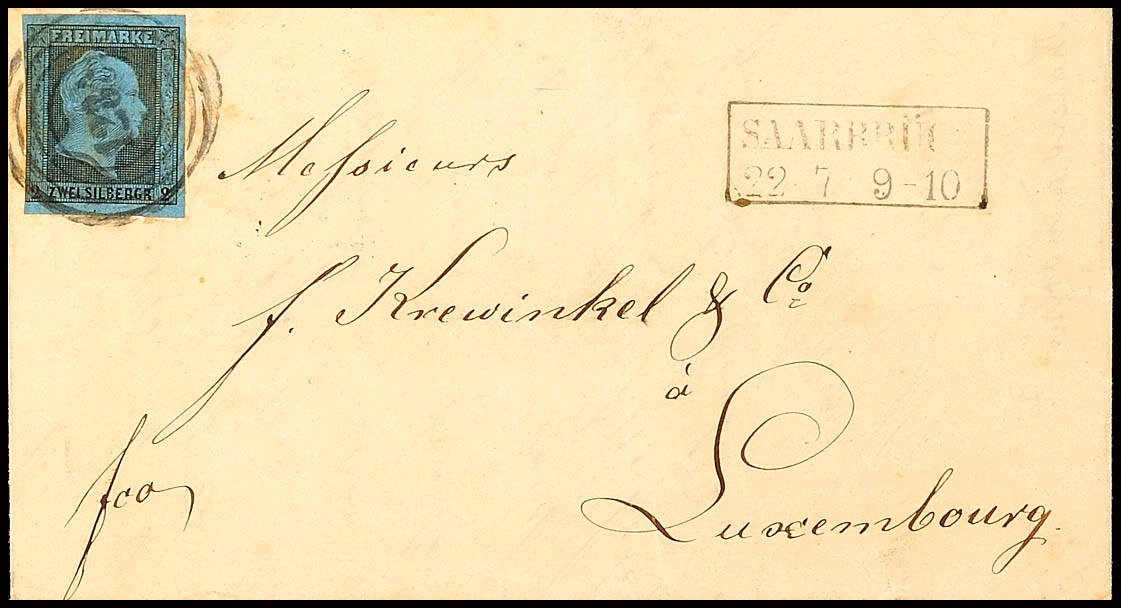 FREIMARKE
2 ZWEI SILBERGR 2
SAARBRÜC
22 7 9-10
Messieurs
f. Krewinkel & Co
à
Luxembourg.
fco